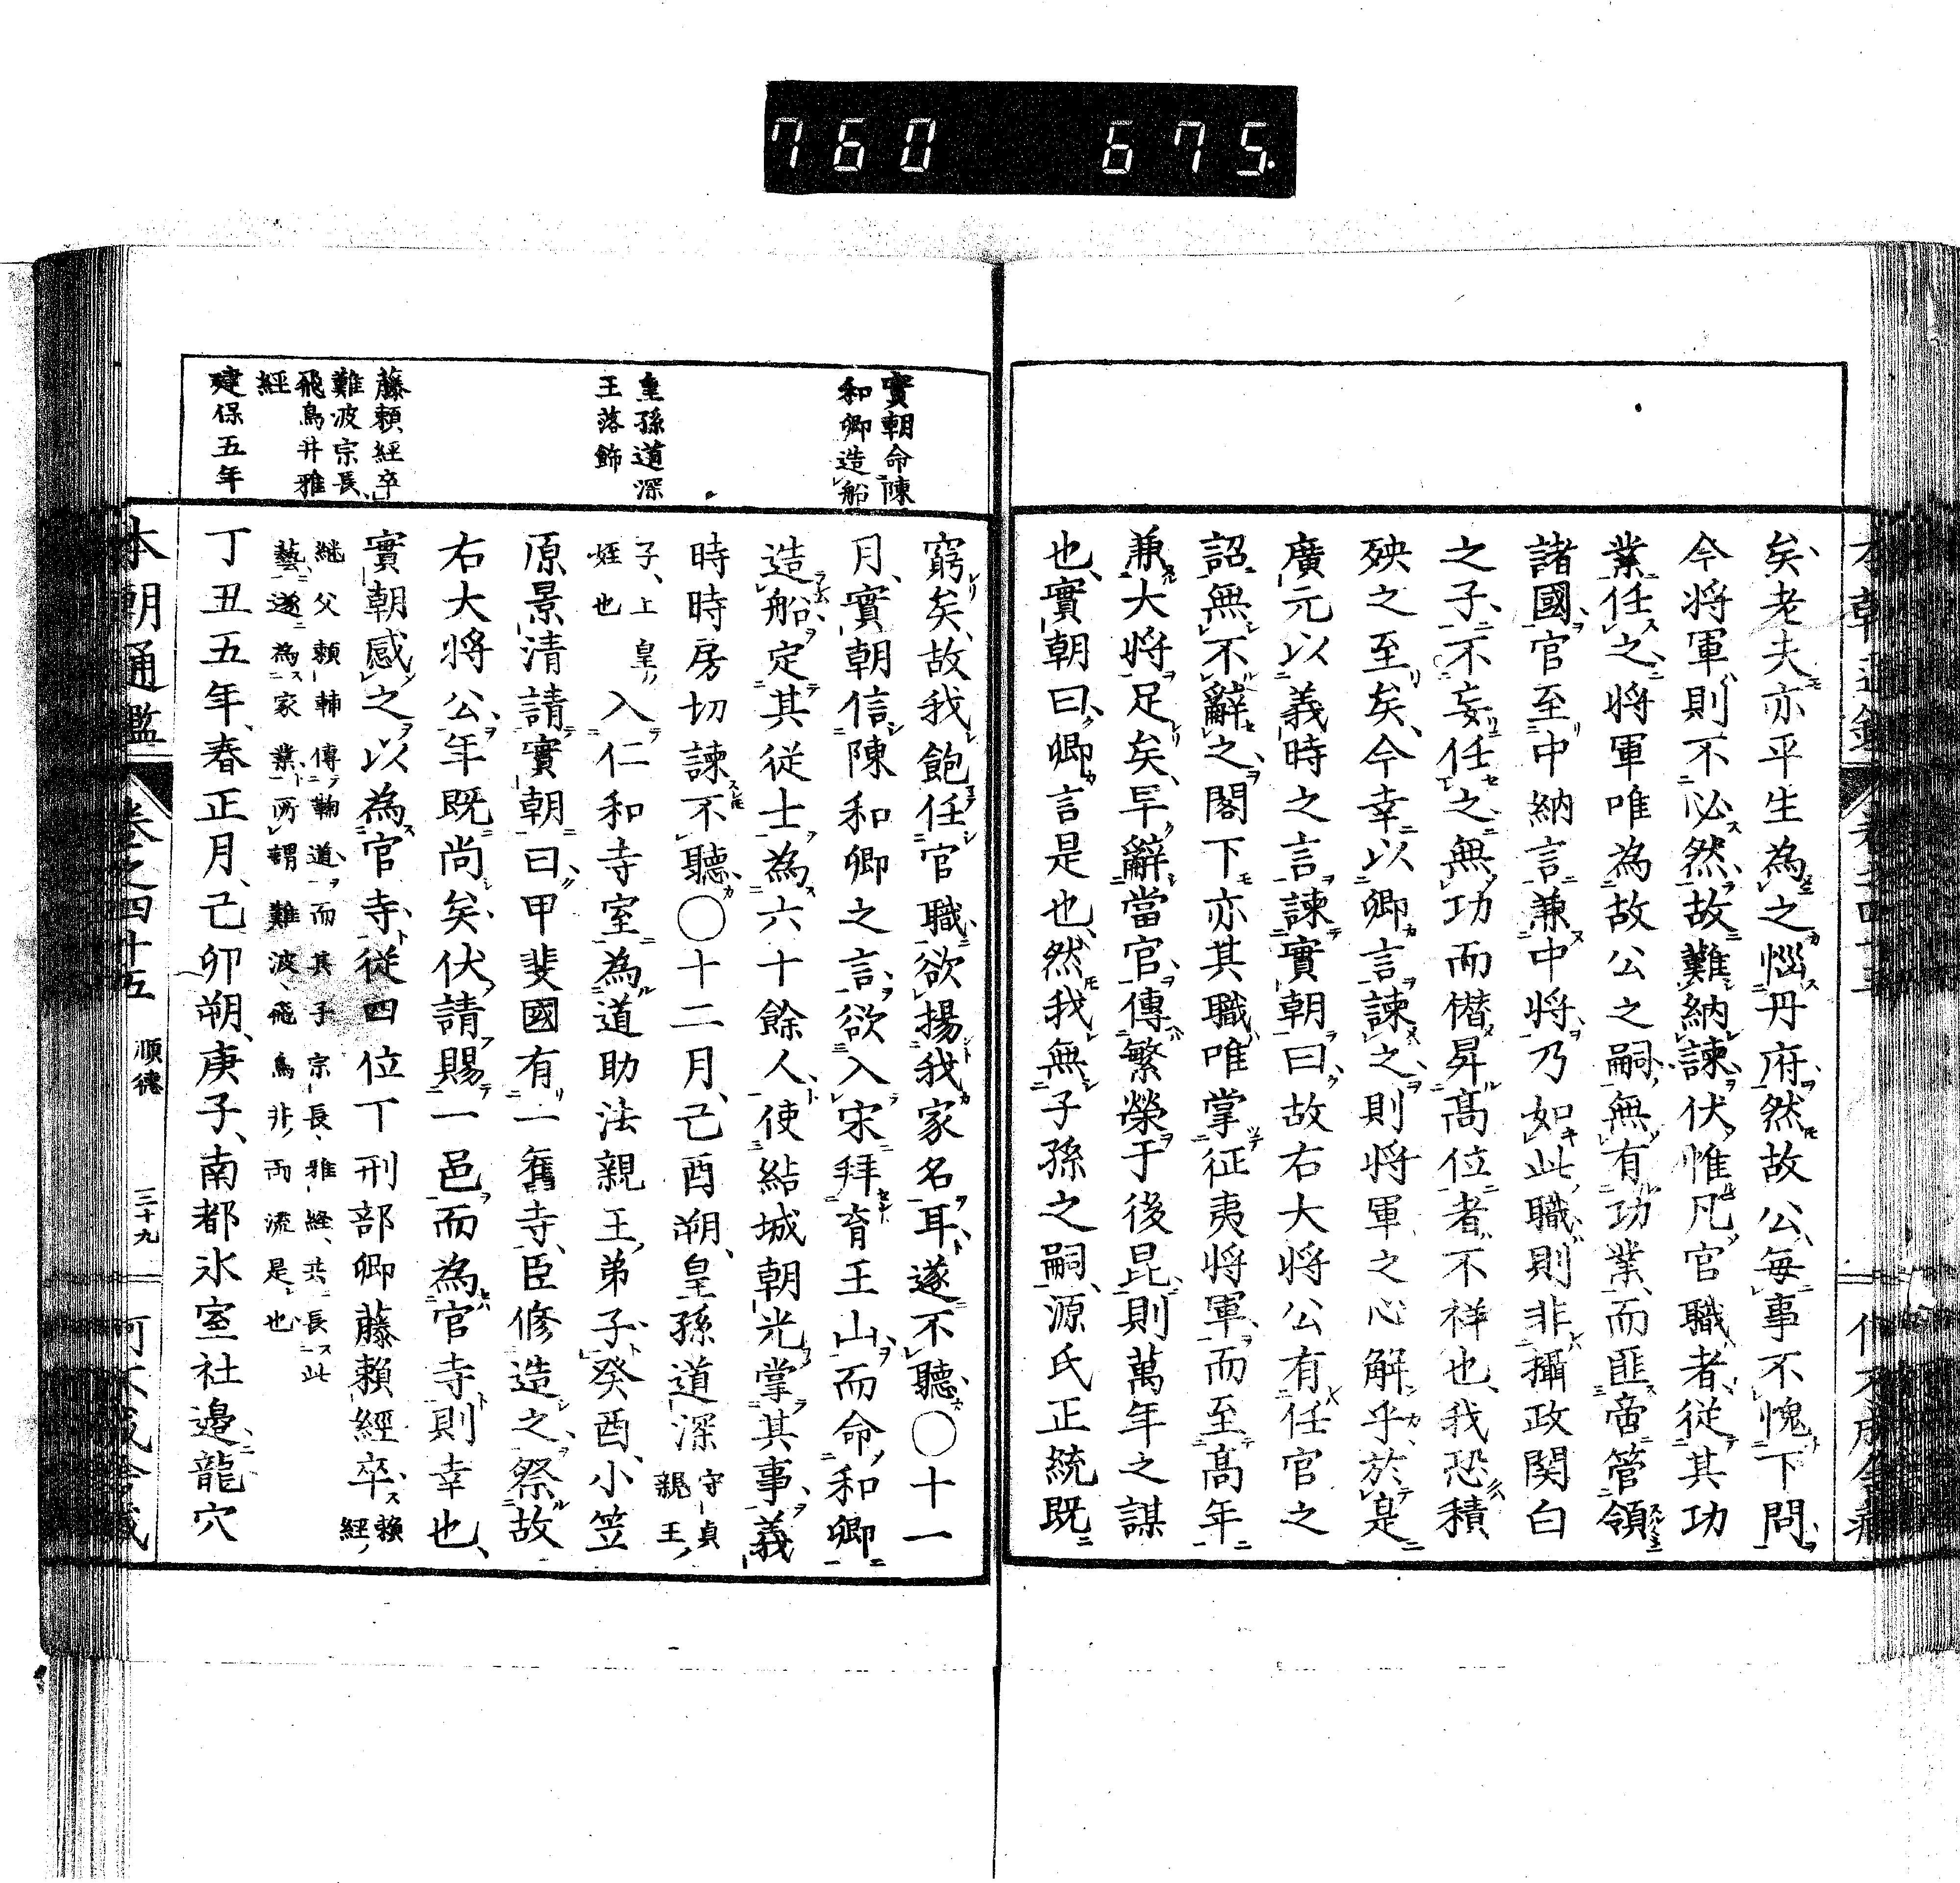 760 675
矣老夫亦平生爲之惱丹府然故公毎事不愧下問
今將軍則不必然故難納諫伏惟凡官職者從其功
業任之將軍唯為故公之嗣無有功業而匪啻管領
諸國官至中納言兼中將乃如此職則非攝政関白
之子不妄任之無功而僭昇髙位者不祥也我恐積
殃之至矣今幸以卿言諫之則將軍之心解乎於是
廣元以義時之言諫實朝曰故右大將公有任官之
詔無不辭之閣下亦其職唯掌征夷將軍而至髙年
兼大將足矣早辭當官傳繁榮于後昆則萬年之謀
也實朝曰卿言是也然我無子孫之嗣源氏正統既
實朝命陳
和卿造船
皇孫道深
王落飾
藤頼經卒
難波宗長
飛鳥井雅
經
建保五年
窮矣故我飽任官職欲揚我家名耳遂不聽〇十一
月實朝信陳和卿之言欲入宋拜育王山而命和卿
造船定其從士為六十餘人使結城朝光掌其事義
時時房切諫不聽〇十二月己酉朔皇孫道深守貞親王
子上皇姪也入仁和寺室為道助法親王弟子癸酉小笠
原景清請實朝曰甲斐國有一舊寺臣修造之祭故
右大將公年既尚矣伏請賜一邑而為官寺則幸也
實朝感之以為官寺從四位下刑部卿藤頼經卒頼經
継父頼輔傳鞠道而其子宗長雅経共長此
藝遂為家業所謂難波飛鳥井両流是也
丁丑五年春正月己卯朔庚子南都氷室社邉龍穴
本朝通鑑 卷之四十五 順德 三十九